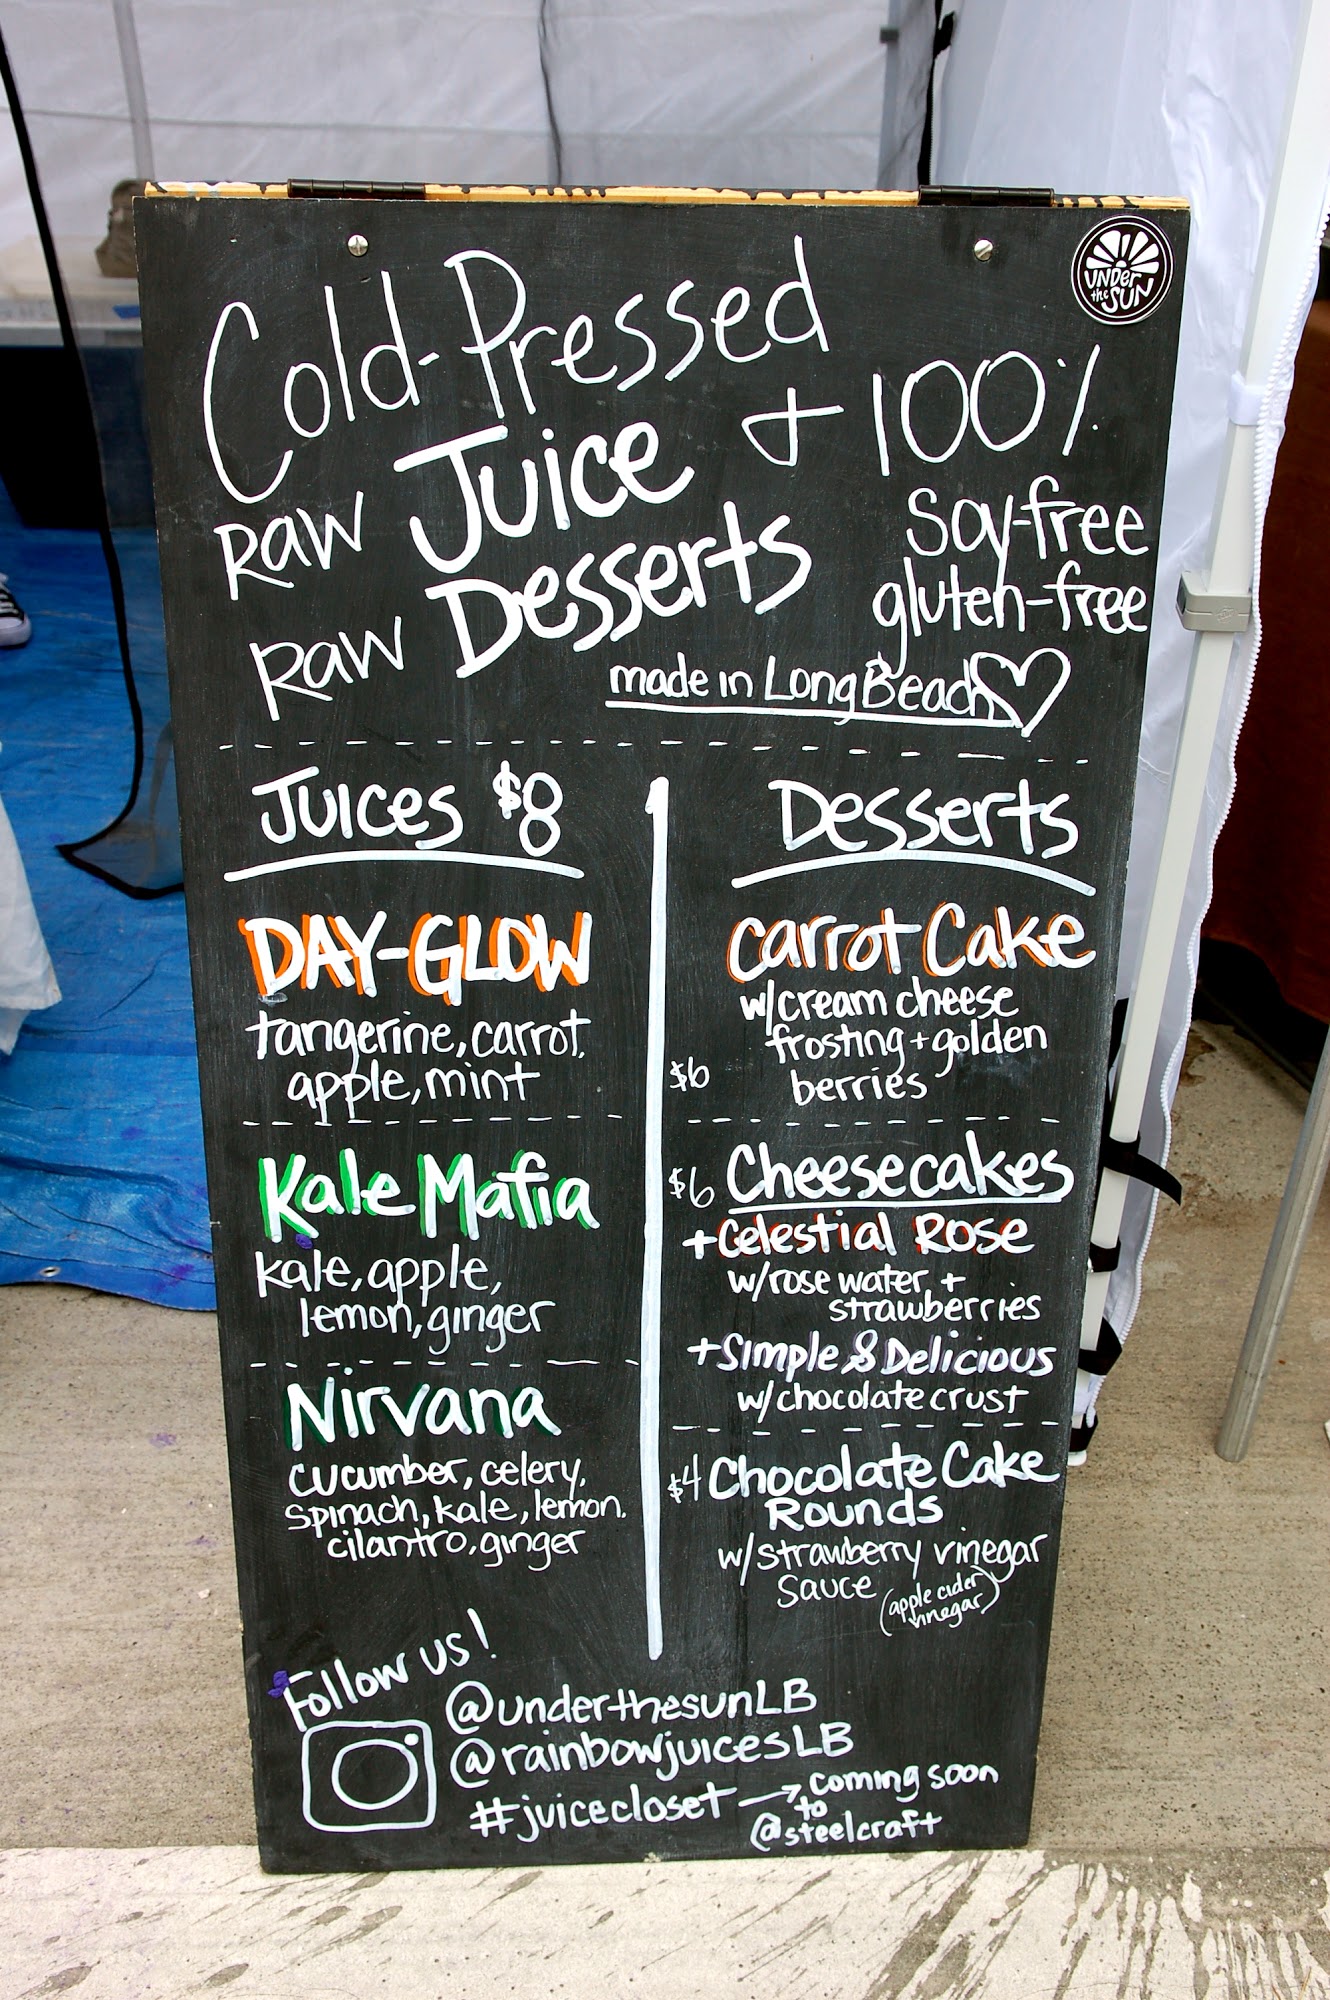 UNDER
the SUN
Cold-Pressed
RAW Juice + 100%
RAW Desserts
soy-free
gluten-free
made in Long Beach
Juices $8
DAY-GLOW
tangerine, carrot,
apple, mint
Kale Mafia
kale, apple,
lemon, ginger
Nirvana
cucumber, celery,
spinach, kale, lemon,
cilantro, ginger
Desserts
Carrot Cake
w/cream cheese
frosting + golden
$6 berries
$6 Cheesecakes
+ Celestial Rose
w/rose water +
strawberries
+ Simple & Delicious
w/chocolate crust
$4 Chocolate Cake
Rounds
w/strawberry vinegar
sauce (apple cider
vinegar)
Follow us!
@underthesunLB
@rainbowjuicesLB
#juicecloset → coming soon
to
@steelcraft